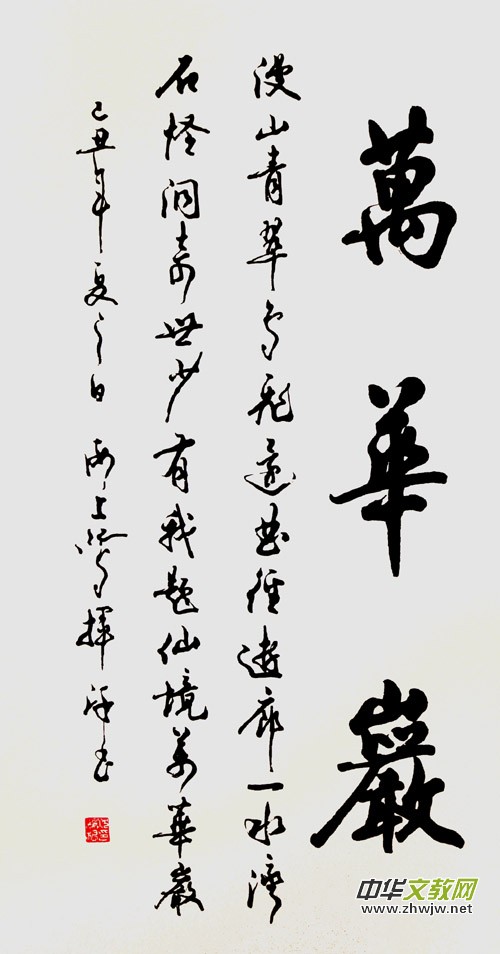 萬華巖
漫山青翠鳥飛還曲徑遊廊一水灣
石怪洞奇世少有我題仙境萬華巖
己丑年夏之日 上 揮汗书
中华文教网
www.zhwjw.net